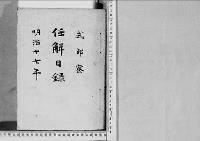 式部寮
任解日録
明治十七年